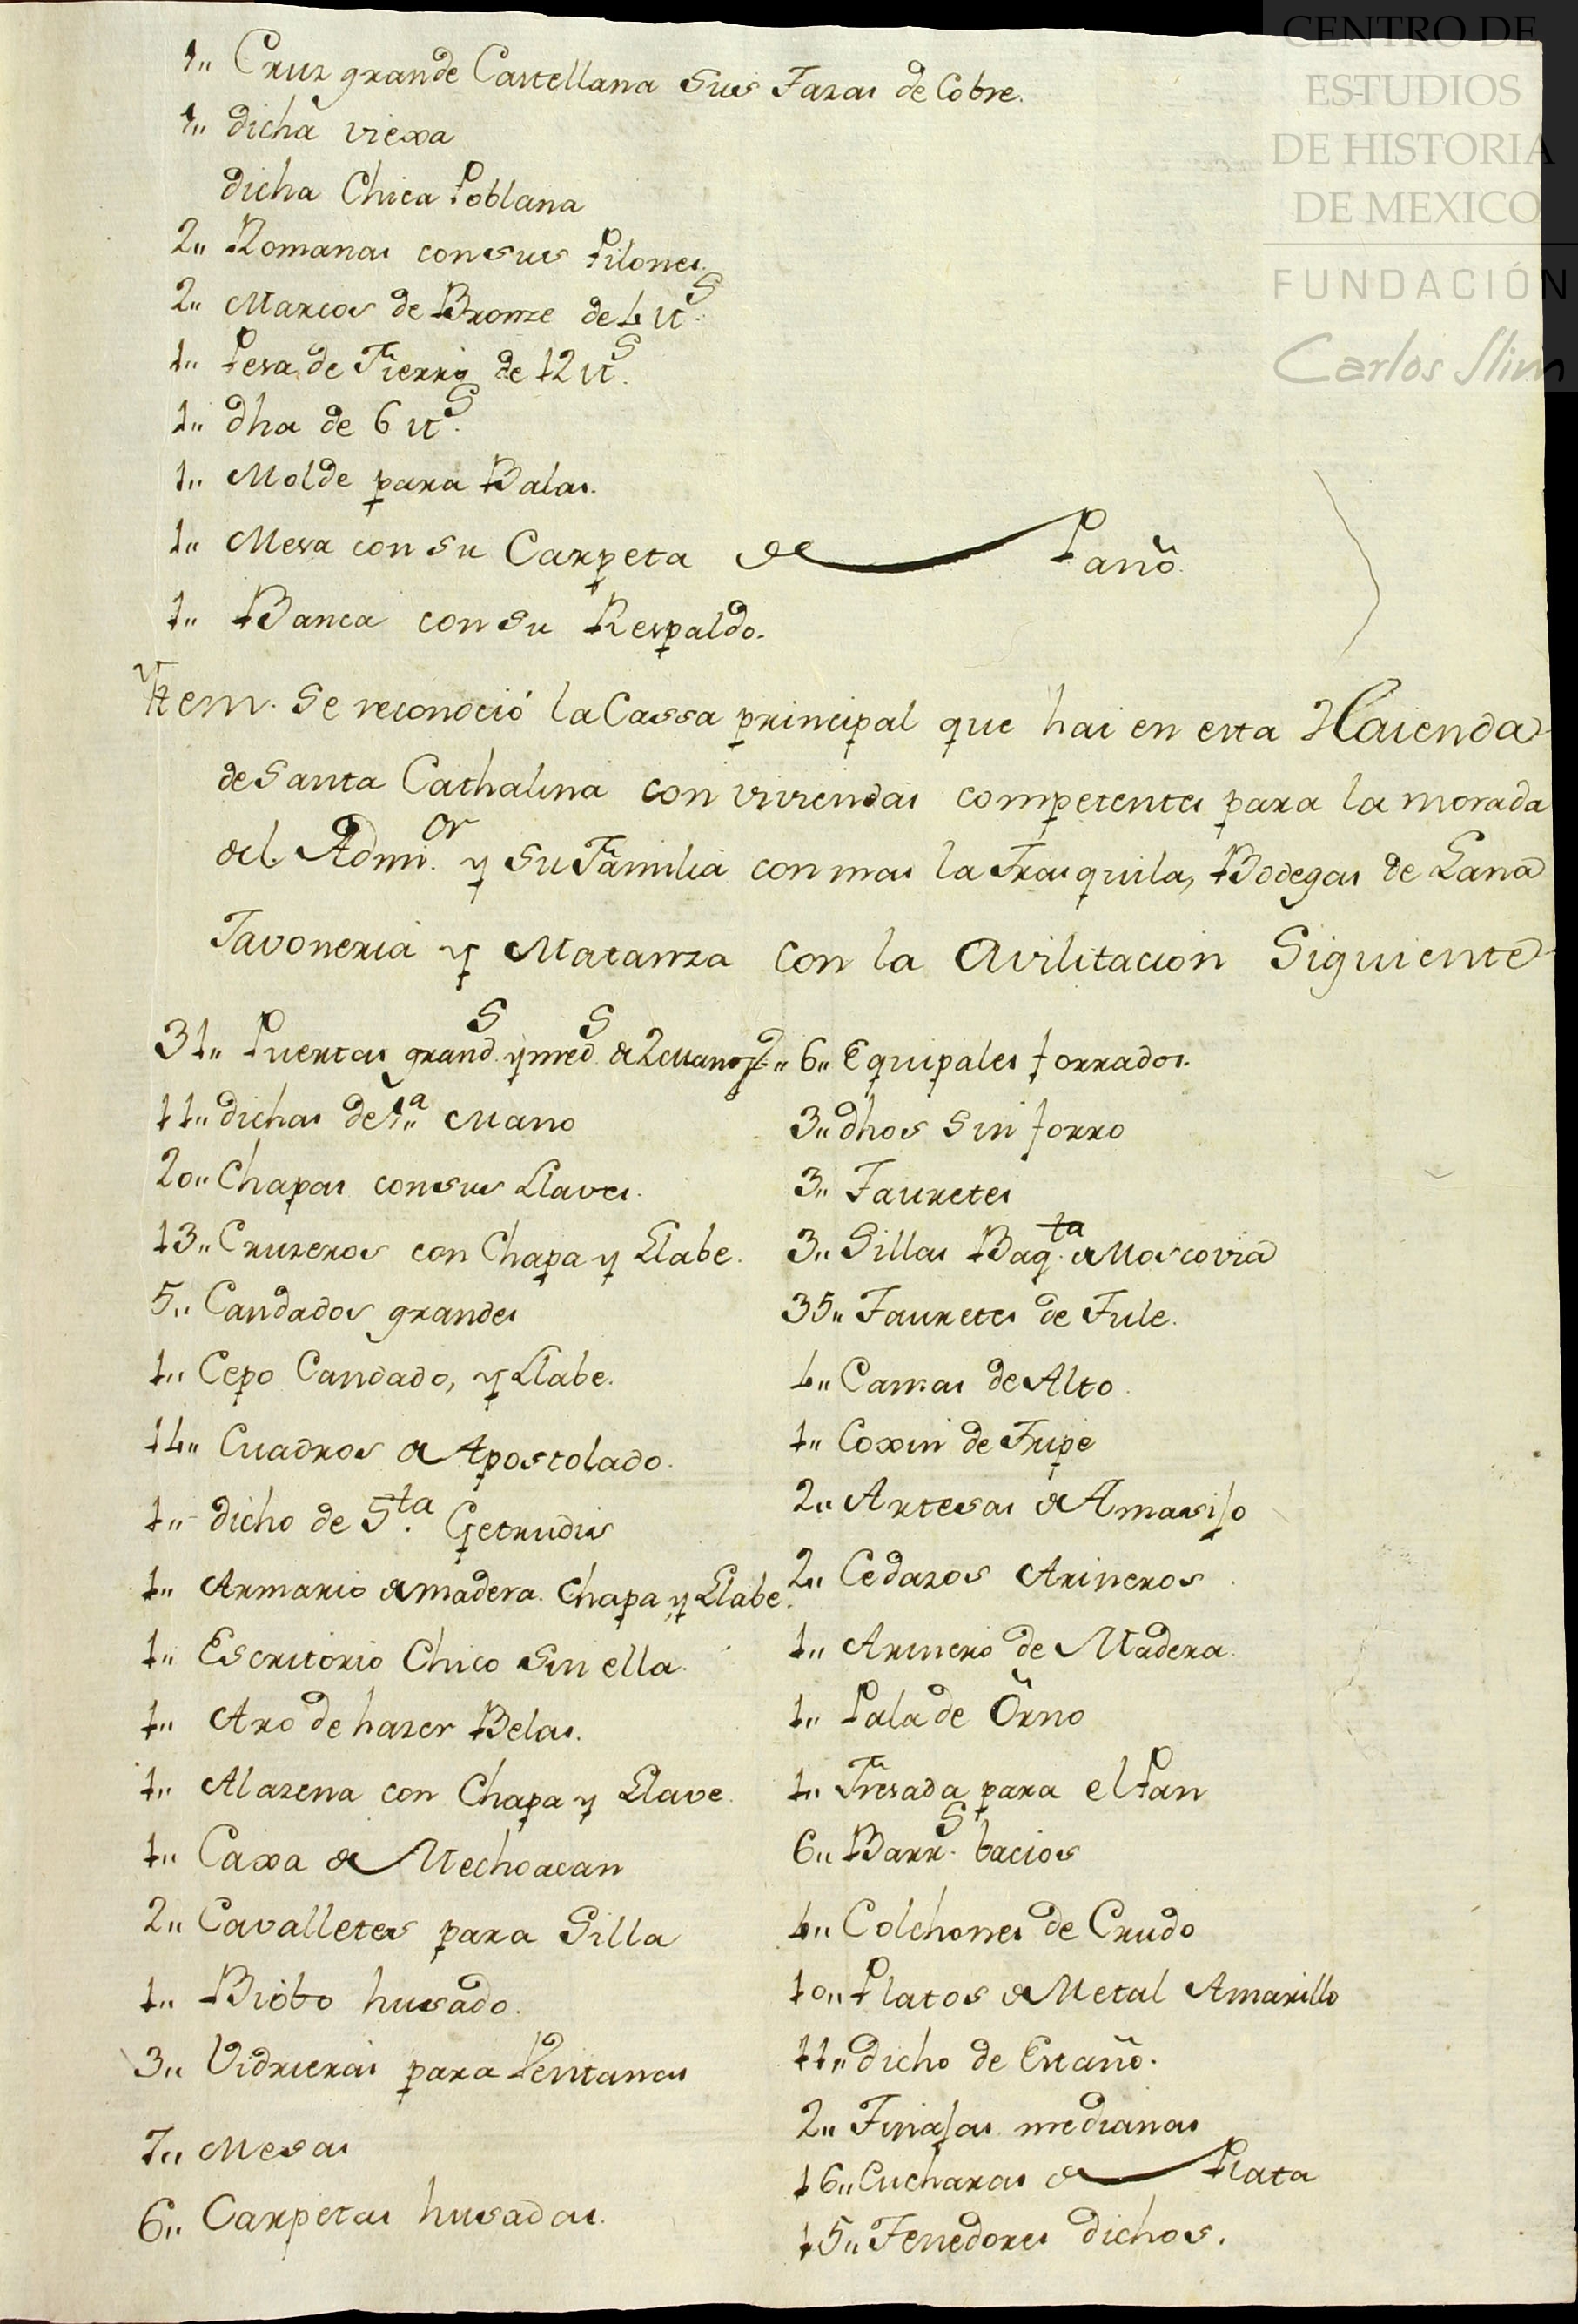 CENTRO DE
ESTUDIOS
DE HISTORIA
DE MEXICO
FUNDACIÓN
Carlos Slim
1,, Cruz grande Castellana sus Tazas de Cobre.
1,, dicha viexa
dicha Chica Poblana
2,, Romanas con sus Pilones.
2,, Marcos de Bronze de 4 lts.
1,, Pesa de Fierro de 12 lts.
1,, dha de 6 lts.
1,, Molde para Balas.
1,, Mesa con su Carpeta de Paño.
1,, Banca con su Respaldo.
Ytem. Se reconoció la Cassa principal que hai en esta Haienda
de Santa Cathalina con viviendas competentes para la morada
del Admor. y su Familia con mas la Trasquila, Bodegas de Lana
Javoneria y Matanza con la Avilitacion Siguiente
31,, Puertas grands. y meds. de 2 Manos
11,, dichas de 1,,a Mano
20,, Chapas con sus Llaves.
13,, Cruzeros con Chapa y Llabe.
5,, Candados grandes
1,, Cepo Candado, y Llabe.
14,, Cuadros de Apostolado.
1,, dicho de Sta. Getrudis
1,, Armario de madera. Chapa y Llabe.
1,, Escritorio Chico Sin ella.
1,, Aro de hazer Belas.
1,, Alazena con Chapa y Llave.
1,, Caxa de Mechoacan
2,, Cavalletes para Silla
1,, Biobo husado.
3,, Vidrieras para Ventanas
7,, Mesas
6,, Carpetas husadas.
6,, Equipales forrados.
3,, dhos Sin forro
3,, Tauretes
3,, Sillas Baqta. de Moscovia
35,, Tauretes de Tule.
4,, Camas de Alto.
1,, Coxin de Tripe
2,, Artesas de Amasijo
2,, Cedazos Arineros.
1,, Arinero de Madera.
1,, Pala de Orno
1,, Fresada para el Pan
6,, Barrs. bacios
4,, Colchones de Crudo
10,, Platos de Metal Amarillo
11,, dicho de Estaño.
2,, Tinajas medianas
16,, Cucharas de Plata
15,, Tenedores dichos.